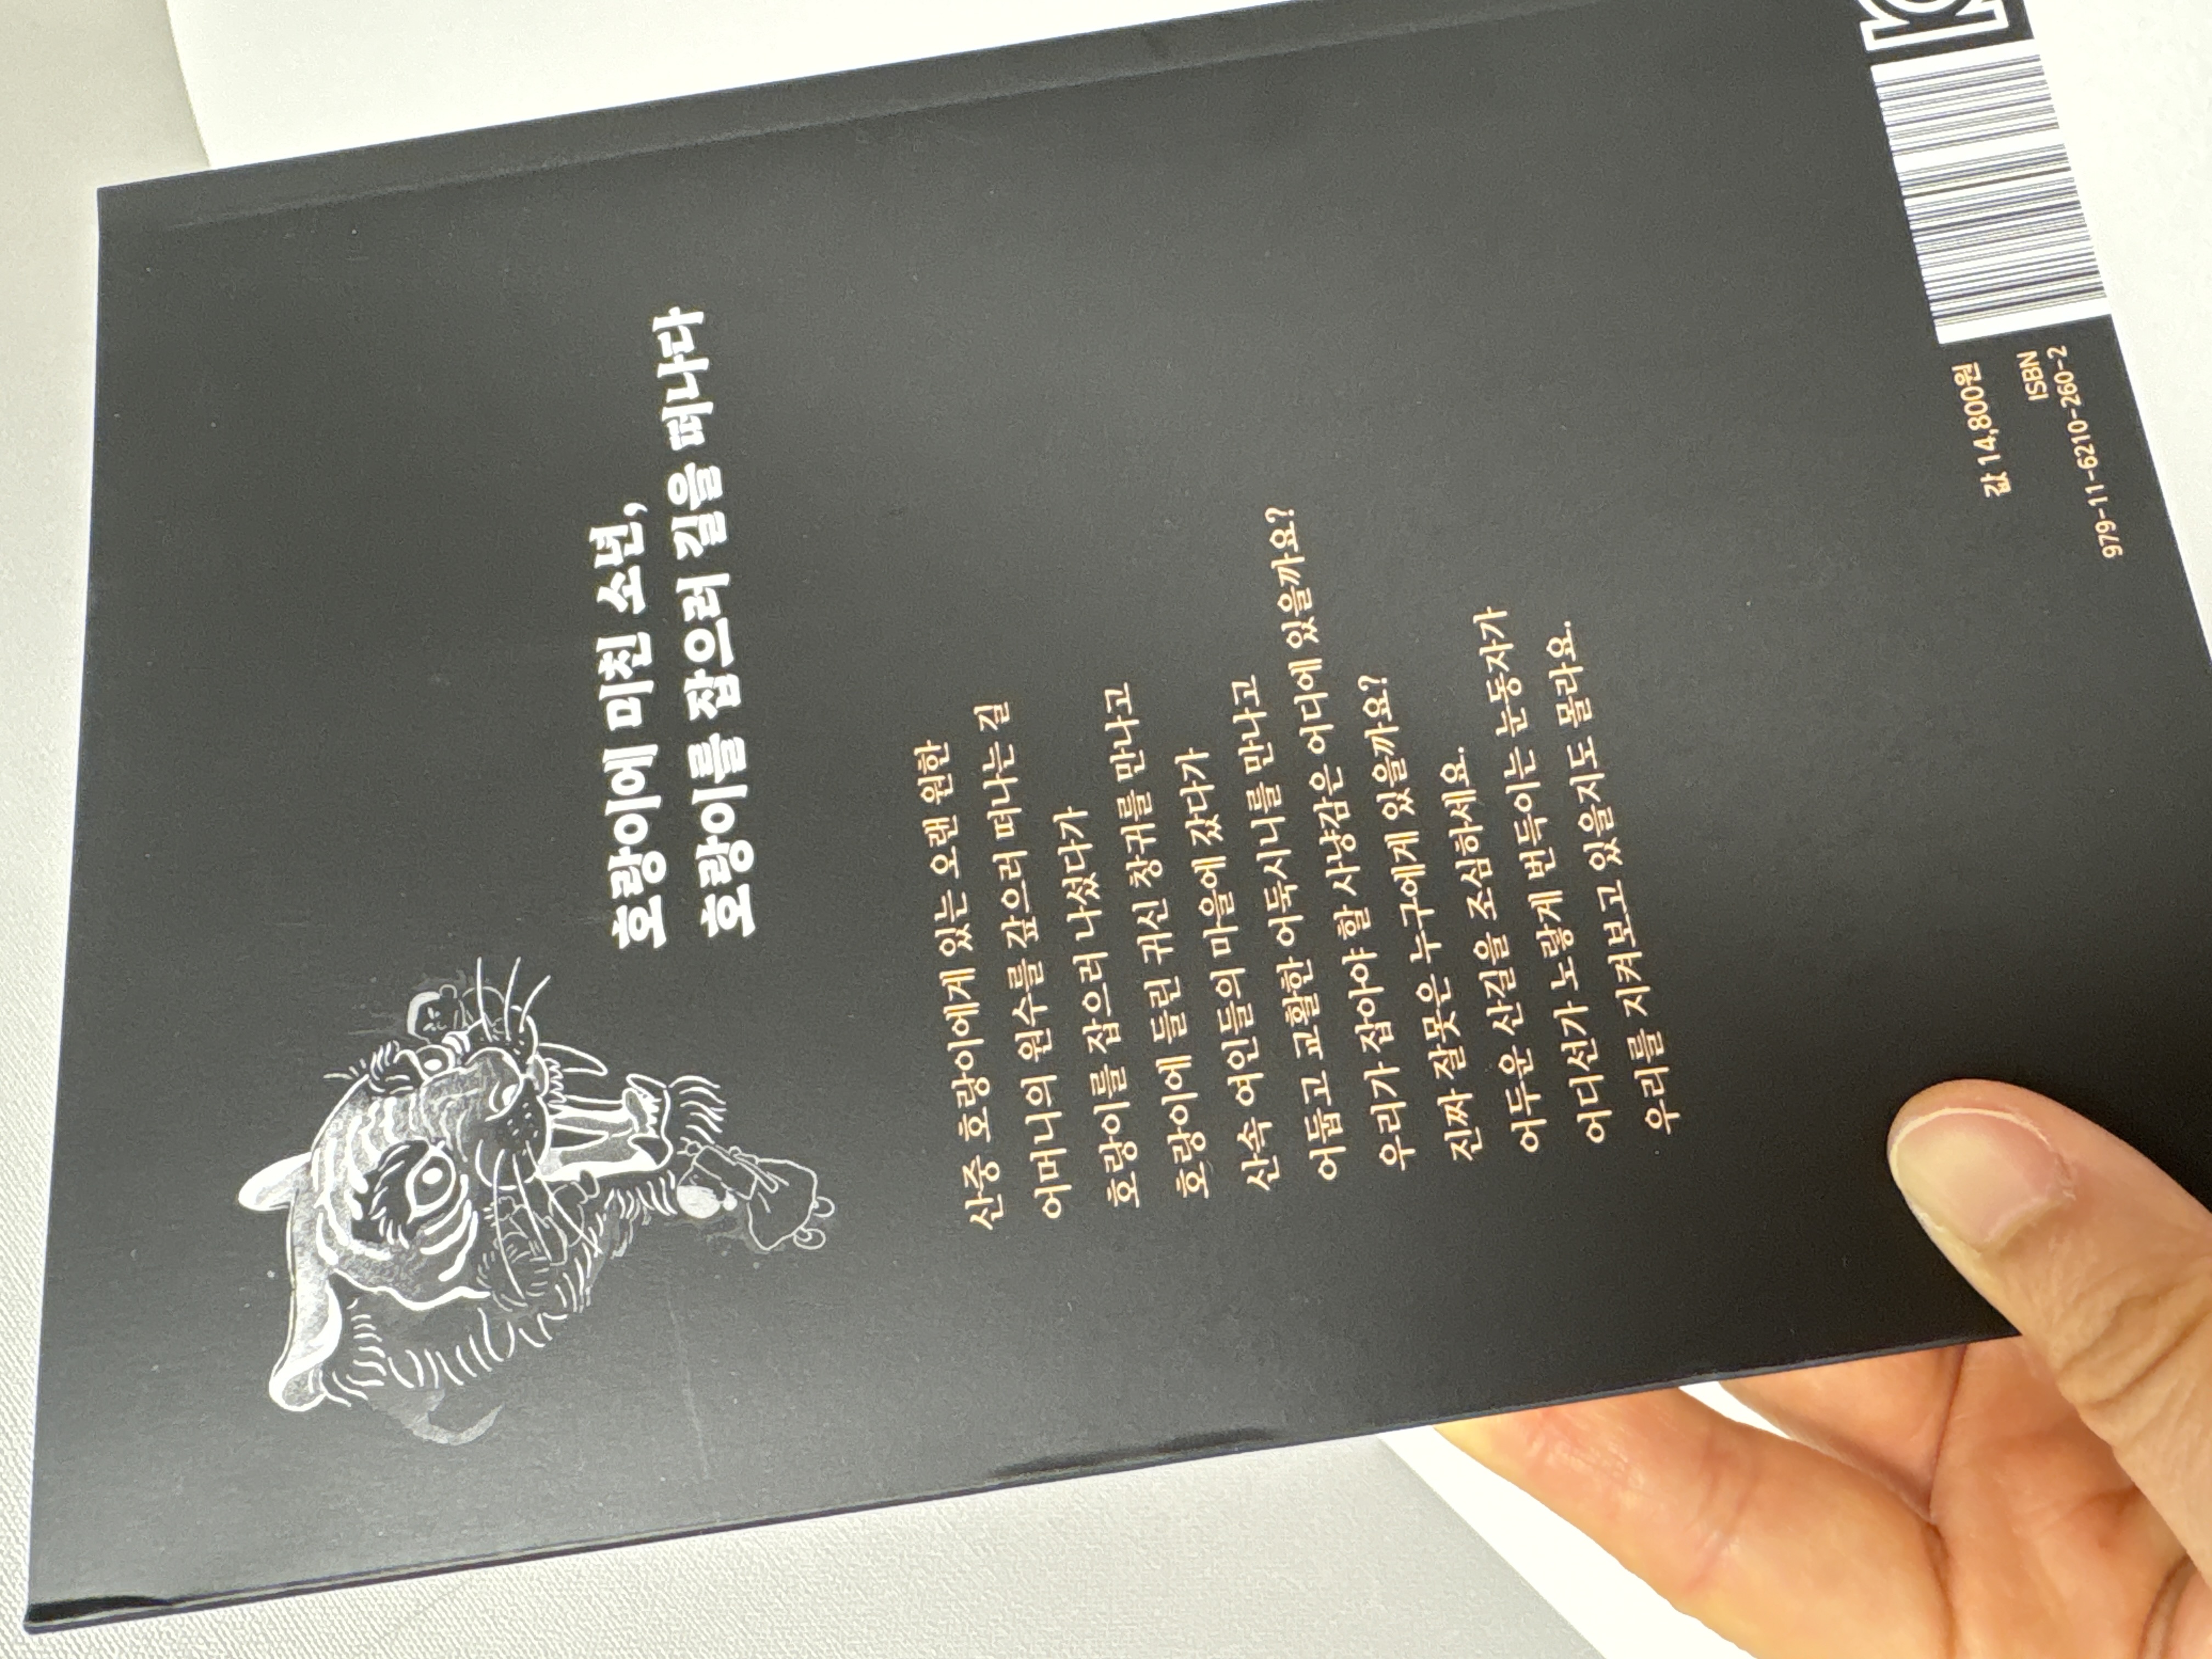 호랑이에 미친 소년,
호랑이를 잡으러 길을 떠나다
산중 호랑이에게 있는 오랜 원한
어머니의 원수를 갚으러 떠나는 길
호랑이를 잡으러 나섰다가
호랑이에 들린 귀신 창귀를 만나고
산속 여인들의 마을에 갔다가
어둡고 교활한 어둑시니를 만나고
우리가 잡아야 할 사냥감은 어디에 있을까요?
진짜 잘못은 누구에게 있을까요?
어두운 산길을 조심하세요.
어디선가 노랗게 번득이는 눈동자가
우리를 지켜보고 있을지도 몰라요.
값 14,800원
ISBN
979-11-6210-260-2